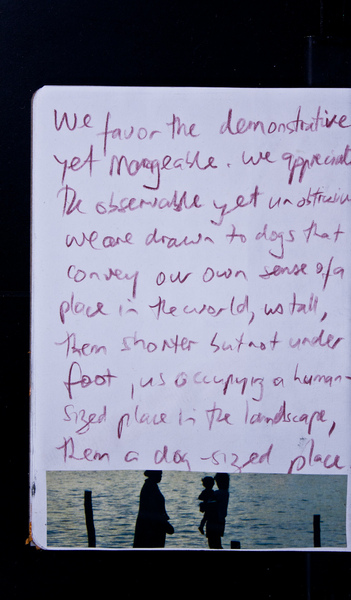 We favor the demonstrative
yet manageable. We appreciat
The observable yet unobtrusiv
we are drawn to dogs that
convey our own sense of a
place in the world, us tall,
them shorter but not under
foot, us occupying a human-
sized place in the landscape,
them a dog-sized place